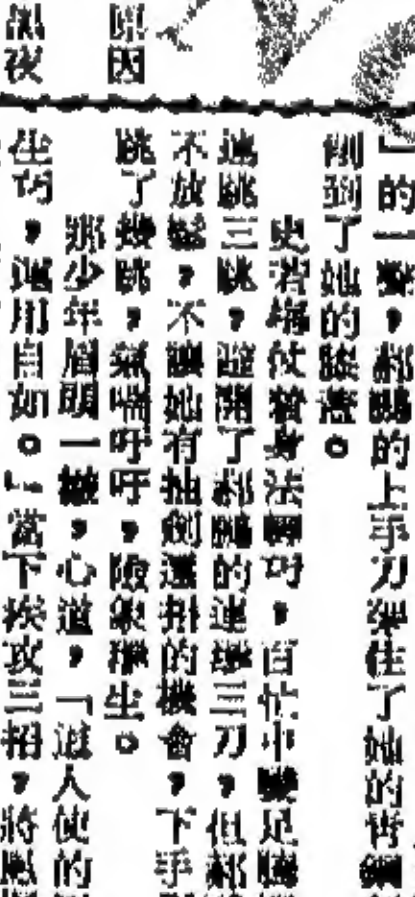 原因
黑夜
」的一聲,郝的上手刀架住了她的青鋼
削到了她的膝蓋。
史若梅仗著身法輕巧,百忙中雙足騰
連跳三跳,避開了郝的連環三刀,但郝
不放鬆,不讓她有抽劍還招的機會,下手
跳了幾跳,氣喘吁吁,險象環生。
那少年眉頭一皺,心道,「這人使的
生巧,運用自如。」當下疾攻三招,將